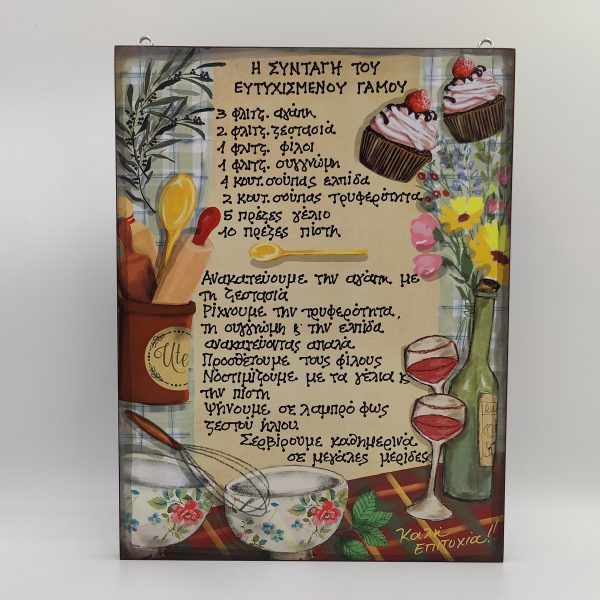 Η ΣΥΝΤΑΓΗ ΤΟΥ
ΕΥΤΥΧΙΣΜΕΝΟΥ ΓΑΜΟΥ
3 φλιτζ. αγάπη
2 φλιτζ. ζεστασιά
1 φλιτζ. φίλοι
1 φλιτζ. συγγνώμη
4 κουτ. σούπας ελπίδα
2 κουτ. σούπας τρυφερότητα
5 πρέζες γέλιο
10 πρέζες πίστη
Ανακατεύουμε την αγάπη με
τη ζεστασιά
Ρίχνουμε την τρυφερότητα,
τη συγγνώμη & την ελπίδα
ανακατεύοντας απαλά
Προσθέτουμε τους φίλους
Νοστιμίζουμε με τα γέλια &
την πίστη
Ψήνουμε σε λαμπρό φως
ζεστού ήλιου.
Σερβίρουμε καθημερινά
σε μεγάλες μερίδες
Ute
Καλή
Επιτυχία!!